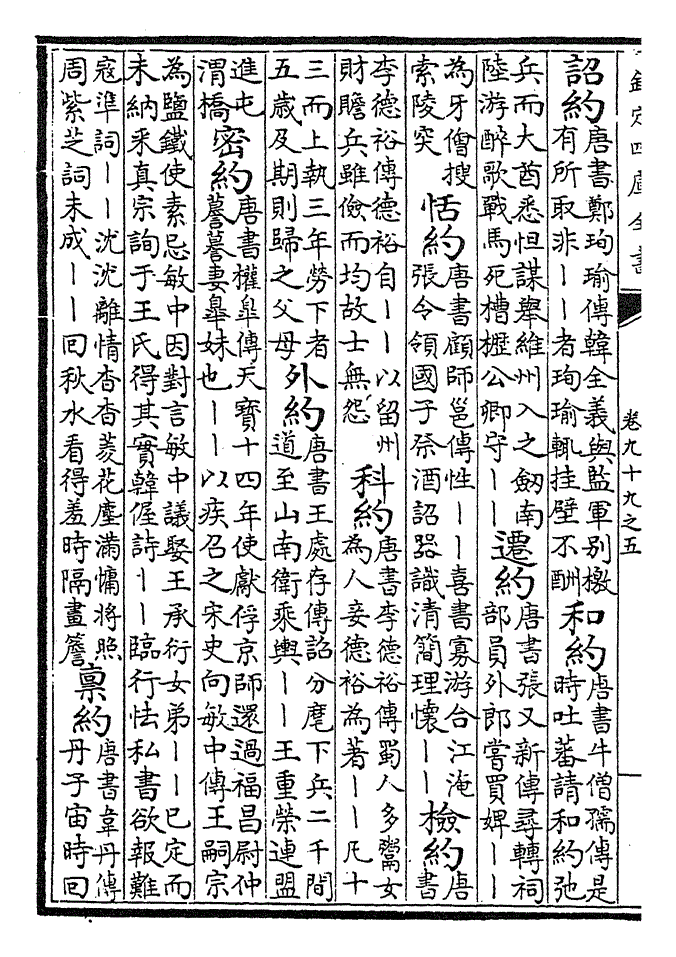 欽定四庫全書
卷九十九之五
詔約
唐書鄭珣瑜傳韓全義與監軍别檄
有所取非丨丨者珣瑜輒挂壁不酬
和約
唐書牛僧孺傳是
時吐蕃請和約弛
兵而大酋悉怛謀舉維州入之劔南
陸游醉歌戰馬死槽櫪公卿守丨丨
遷約
唐書張又新傳尋轉祠
部員外郎嘗買婢丨丨
為牙僧搜
索陵突
恬約
唐書顧師邕傳性丨丨喜書寡游合江淹
張令領國子祭酒詔器識清簡理懷丨丨
檢約
唐
書
李德裕傳德裕自丨丨以留州
財贍兵雖儉而均故士無怨
科約
唐書李德裕傳蜀人多鬻女
為人妾德裕為著丨丨凡十
三而上執三年勞下者
五歲及期則歸之父母
外約
唐書王處存傳詔分麾下兵二千間
道至山南衛乘輿丨丨王重榮連盟
進屯
渭橋
密約
唐書權皐傳天寶十四年使獻俘京師還過福昌尉仲
謩謩妻皐妹也丨丨以疾召之宋史向敏中傳王嗣宗
為鹽鐵使素忌敏中因對言敏中議娶王承衍女弟丨丨已定而
未納采真宗詢于王氏得其實韓偓詩丨丨臨行怯私書欲報難
寇準詞丨丨沈沈離情杳杳菱花塵滿慵將照
周紫芝詞未成丨丨回秋水看得羞時隔畫簷
稟約
唐書韋丹傳
丹子宙時回